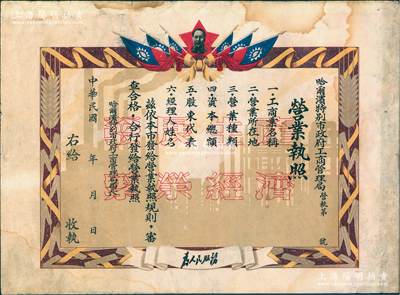 哈爾濱特別市政府工商管理局營執第　號
營業執照
一·工商業名稱
二·營業所在地
三·營業種類
四·資本總額
五·股東代表
六·經理人姓名
該依本市發給營業執照規則，審
查合格，合行發給營業執照
哈爾濱特別市政府工商管理局局長
中華民國　年　月　日
右給　收執
繁榮經濟
為人民服務
上海陽明拍賣